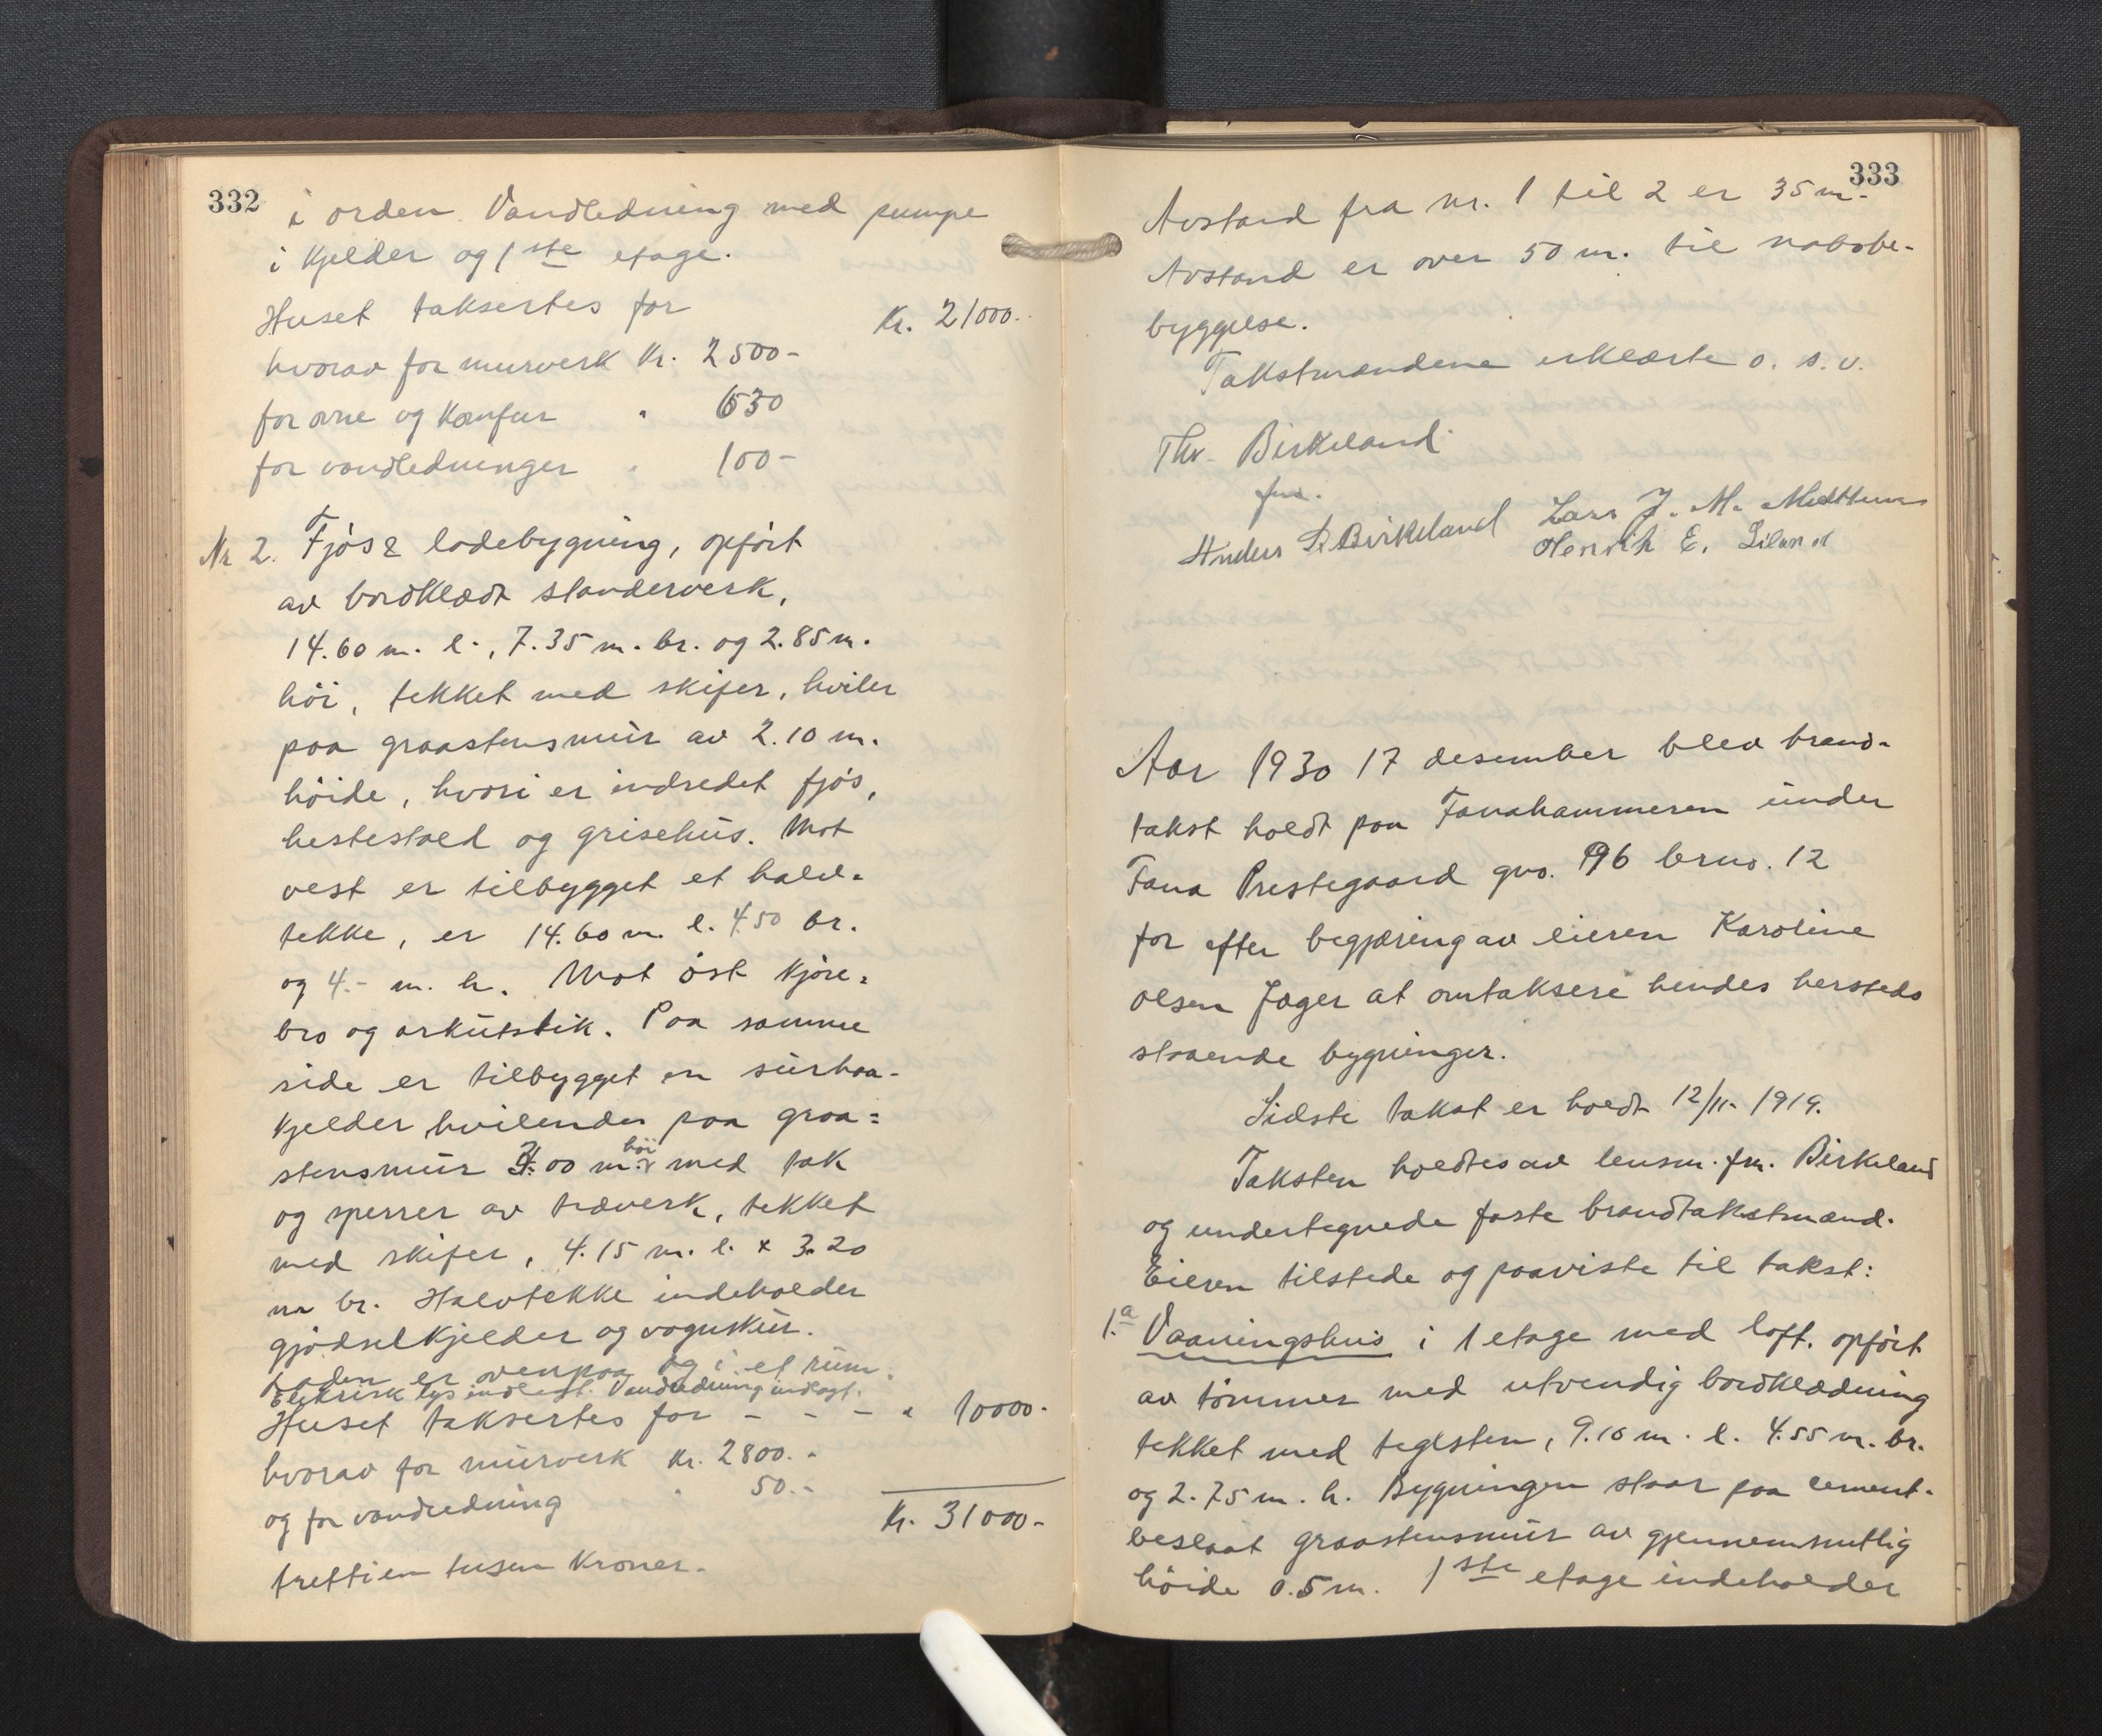 332
i orden. Vandledning med pumpe
i kjelder og 1ste etage.
Huset taksertes for Kr. 21000.-
hvorav for murverk Kr. 2500-
for ovne og komfur " 650
for vandledninger " 100-
Nr 2. Fjøs & ladebygning, opført
av bordklædt standerverk,
14.60 m. l., 7.35 m. br. og 2.85 m.
høi, tekket med skifer, hviler
paa graastensmur av 2.10 m.
høide, hvori er indredet fjøs,
hestestald og grisehus. Mot
vest er tilbygget et halv-
tekke, er 14.60 m. l. 4.50 br.
og 4.- m. h. Mot øst kjøre-
bro og arkutstik. Paa samme
side er tilbygget en surhaa-
kjelder hvilende paa graa-
stensmur 3.00 m. høi med tak
og sperrer av træverk, tekket
med skifer, 4.15 m. l. x 3.20
m br. Halvtekke indeholder
gjødselkjelder og vognskur.
Laden er ovenpaa og i et rum.
Elektrisk lys indlagt. Vandledning indlagt.
Huset taksertes for - - - " 10000.
hvorav for murverk Kr. 2800.-
og for vandledning " 50.-
Kr. 31000-
trettien tusen kroner.
333
Avstand fra nr. 1 til 2 er 35 m.
Avstand er over 50 m. til nabobe-
byggelse.
Takstmændene erklærte o. s. v.
Thv. Birkeland
fm.
Anders Birkeland Lars J. M. Midttun
Henrik E. Liland
Aar 1930 17 desember blev brand-
takst holdt paa Fanahammeren under
Fana Prestegaard gno. 96 brno. 12
for efter begjæring av eieren Karoline
Olsen Jæger at omtaksere hendes hersteds
staaende bygninger.
Sidste takst er holdt 12/11- 1919.
Taksten holdtes av lensm. fm. Birkeland
og undertegnede faste brandtakstmænd.
Eieren tilstede og paaviste til takst:
1.a Vaaningshus i 1 etage med loft, opført
av tømmer med utvendig bordklædning
tekket med teglsten, 9.10 m. l. 4.55 m. br.
og 2.75 m. h. Bygningen staar paa cement-
beslaat graastensmur av gjennemsnitlig
høide 0.5 m. 1ste etage indeholder